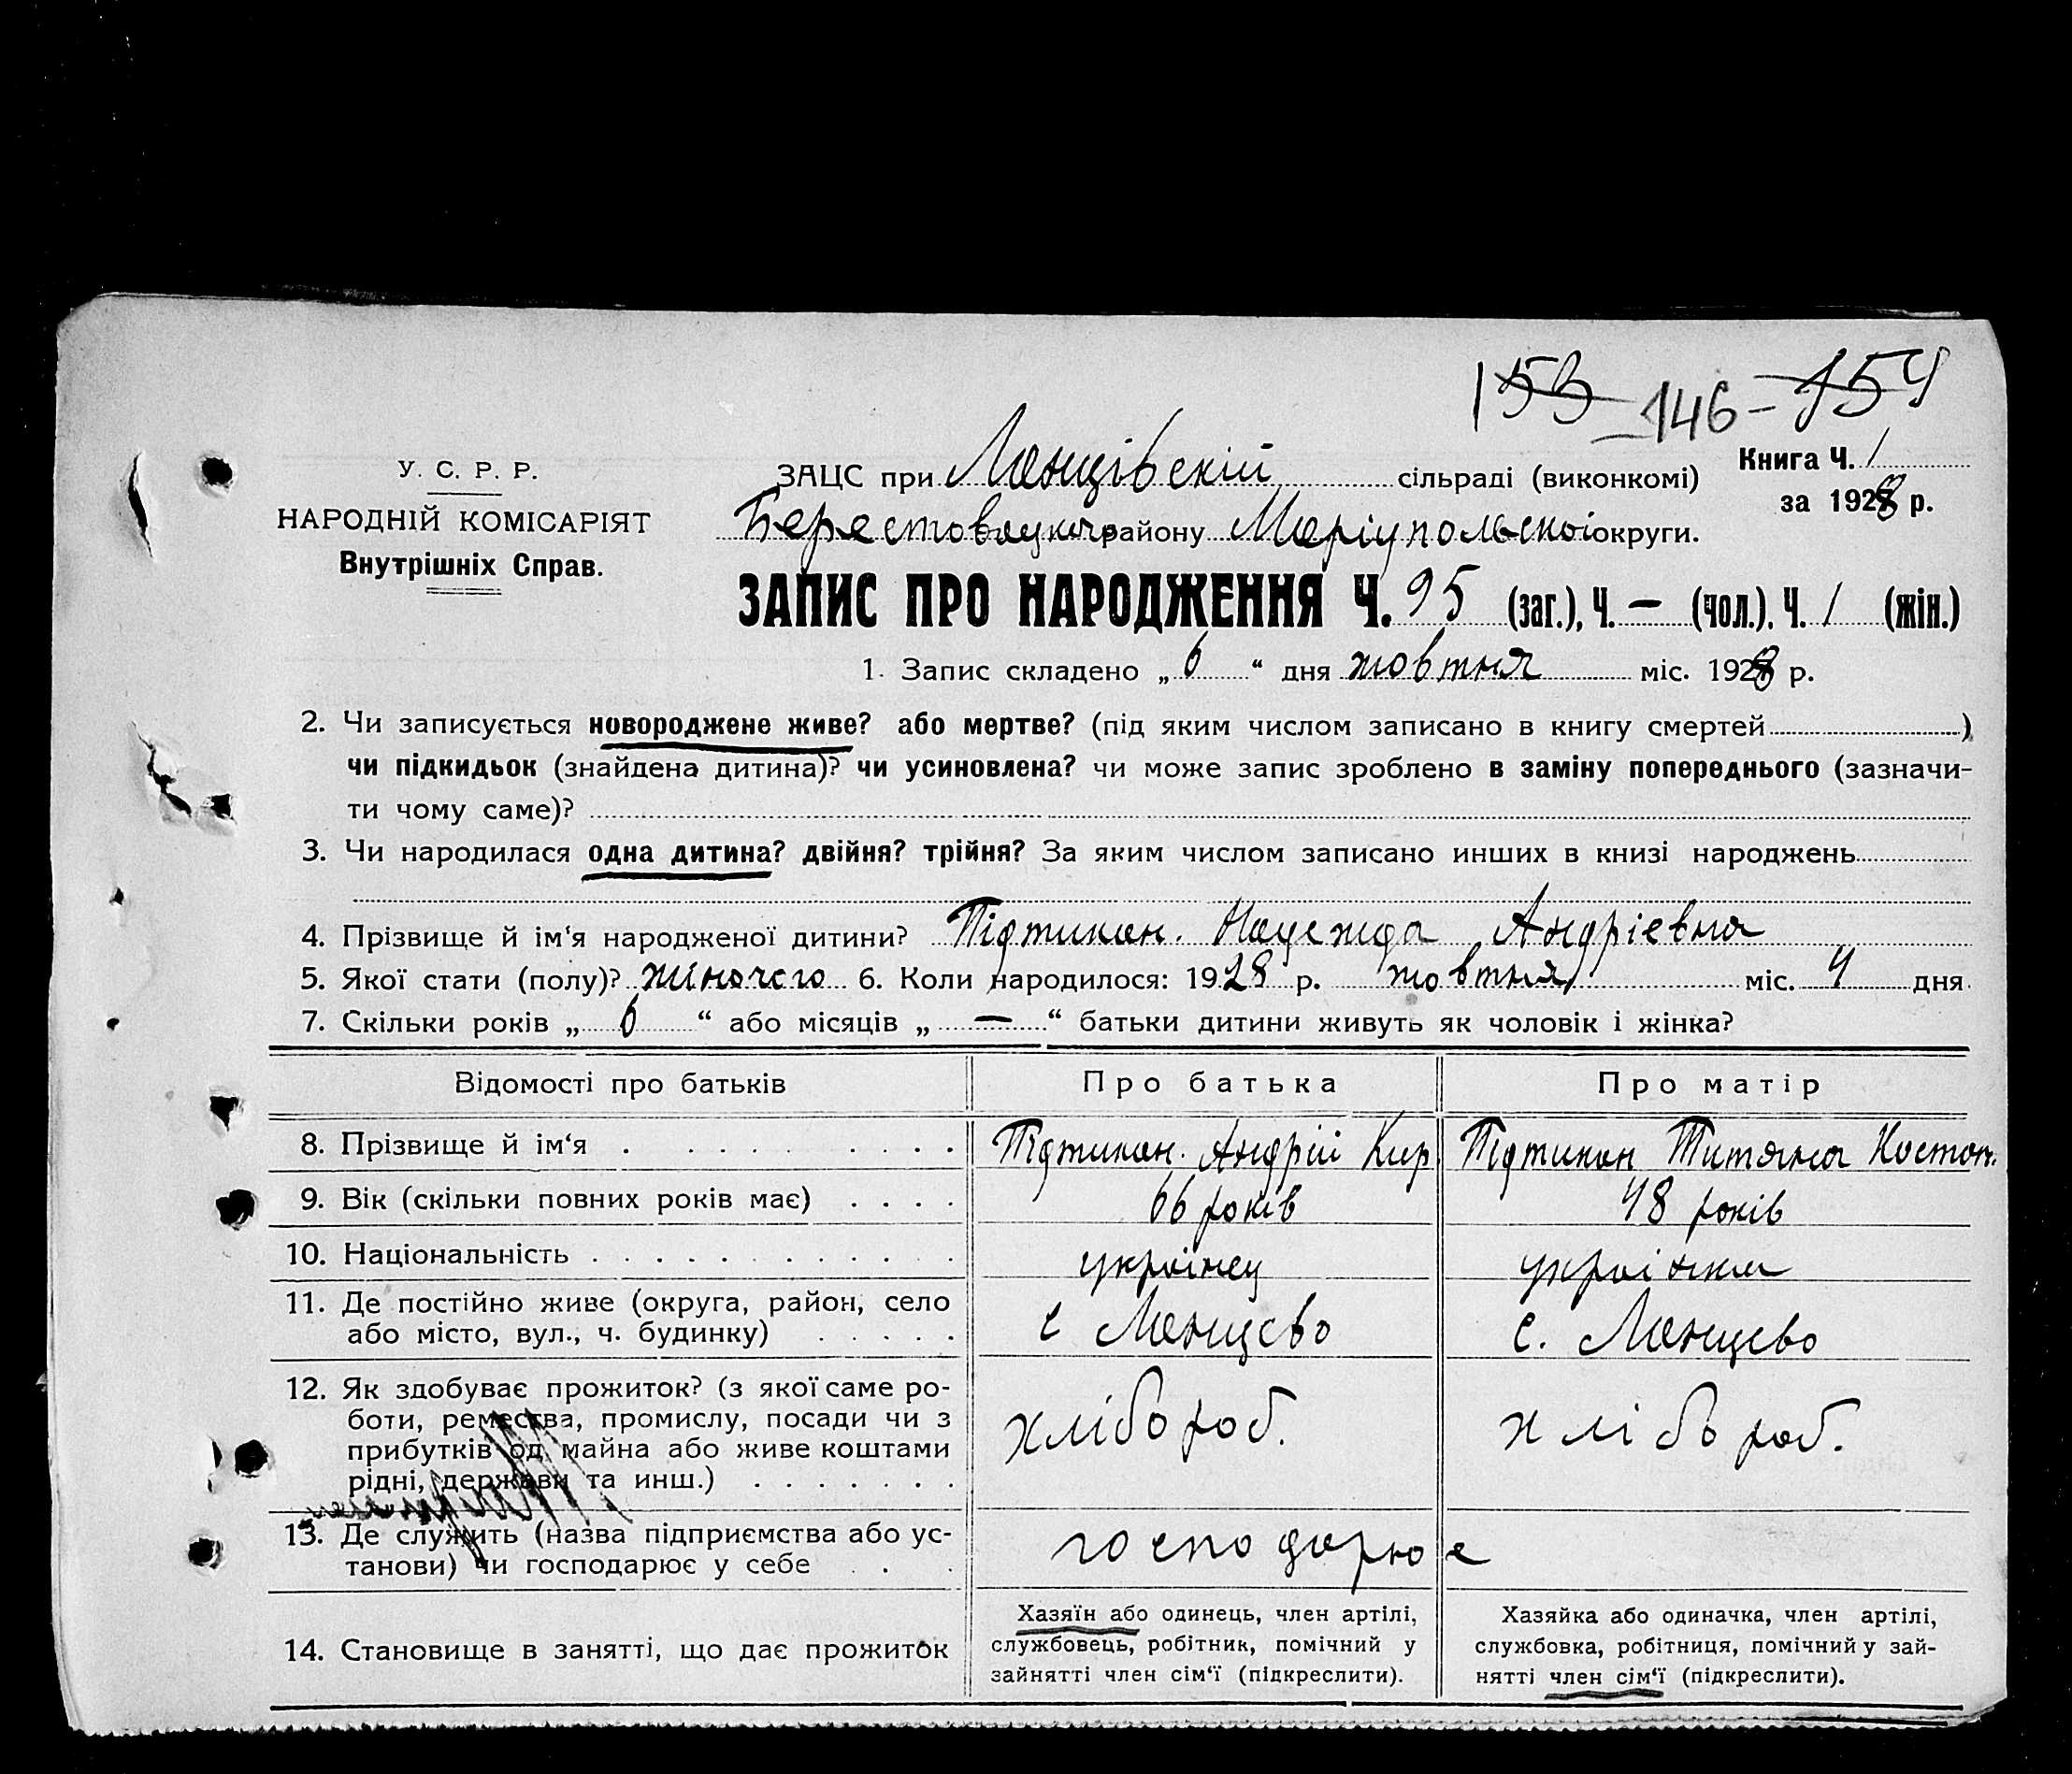 153 – 146 – 154
У. С. Р. Р.
НАРОДНІЙ КОМІСАРІЯТ
Внутрішніх Справ.
ЗАЦС при Манцівскій сільраді (виконкомі)
Книга Ч. 1
за 1928 р.
Берестовецького району Маріупольскоі округи.
ЗАПИС ПРО НАРОДЖЕННЯ Ч. 95 (заг.), Ч. — (чол.), Ч. 1 (жін.)
1. Запис складено „ 6 “ дня жовтня міс. 1928 р.
2. Чи записується новороджене живе? або мертве? (під яким числом записано в книгу смертей )
чи підкидьок (знайдена дитина)? чи усиновлена? чи може запис зроблено в заміну попереднього (зазначи-
ти чому саме)?
3. Чи народилася одна дитина? двійня? трійня? За яким числом записано инших в книзі народжень
4. Прізвище й ім‘я народженої дитини? Підтикан. Надежда Андріевна
5. Якої стати (полу)? жіночого 6. Коли народилося: 1928 р. жовтня міс. 4 дня
7. Скільки років „ 6 “ або місяців „ — “ батьки дитини живуть як чоловік і жінка?
Відомості про батьків Про батька Про матір
8. Прізвище й ім‘я Підтикан. Андрій Кир. Підтикан Титяна Костан.
9. Вік (скільки повних років має) 66 років 48 років
10. Національність украінец украінка
11. Де постійно живе (округа, район, село
або місто, вул., ч. будинку) с Манцево с. Манцево
12. Як здобуває прожиток? (з якої саме ро-
боти, ремества, промислу, посади чи з
прибутків од майна або живе коштами
рідні, держави та инш.) хлібороб. хлібороб.
13. Де служить (назва підприємства або ус-
танови) чи господарює у себе господарюе
14. Становище в занятті, що дає прожиток
Хазяїн або одинець, член артілі,
службовець, робітник, помічний у
зайнятті член сім‘ї (підкреслити).
Хазяйка або одиначка, член артілі,
службовка, робітниця, помічний у зай-
нятті член сім‘ї (підкреслити).